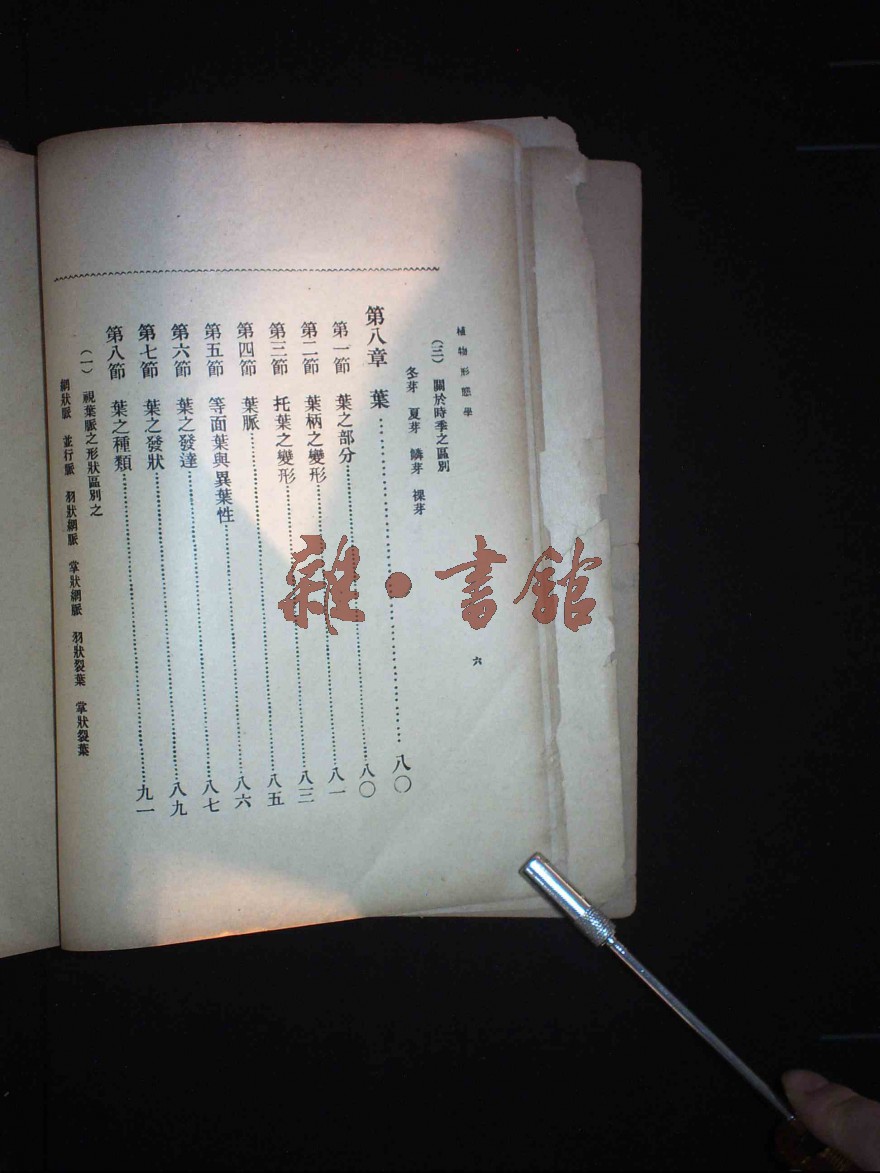 植物形態學
六
(三) 關於時季之區別
冬芽 夏芽 鱗芽 裸芽
第八章 葉……八〇
第一節 葉之部分……八〇
第二節 葉柄之變形……八一
第三節 托葉之變形……八三
第四節 葉脈……八五
第五節 等面葉與異葉性……八六
第六節 葉之發達……八七
第七節 葉之發狀……八九
第八節 葉之種類……九一
(一) 視葉脈之形狀區別之
網狀脈 並行脈 羽狀網脈 掌狀網脈 羽狀裂葉 掌狀裂葉
雜·書館